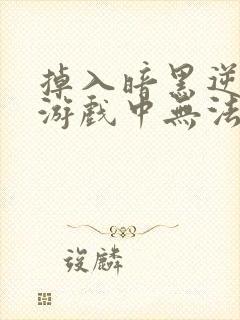 掉入暗黑逆
游戲中無法
後麟